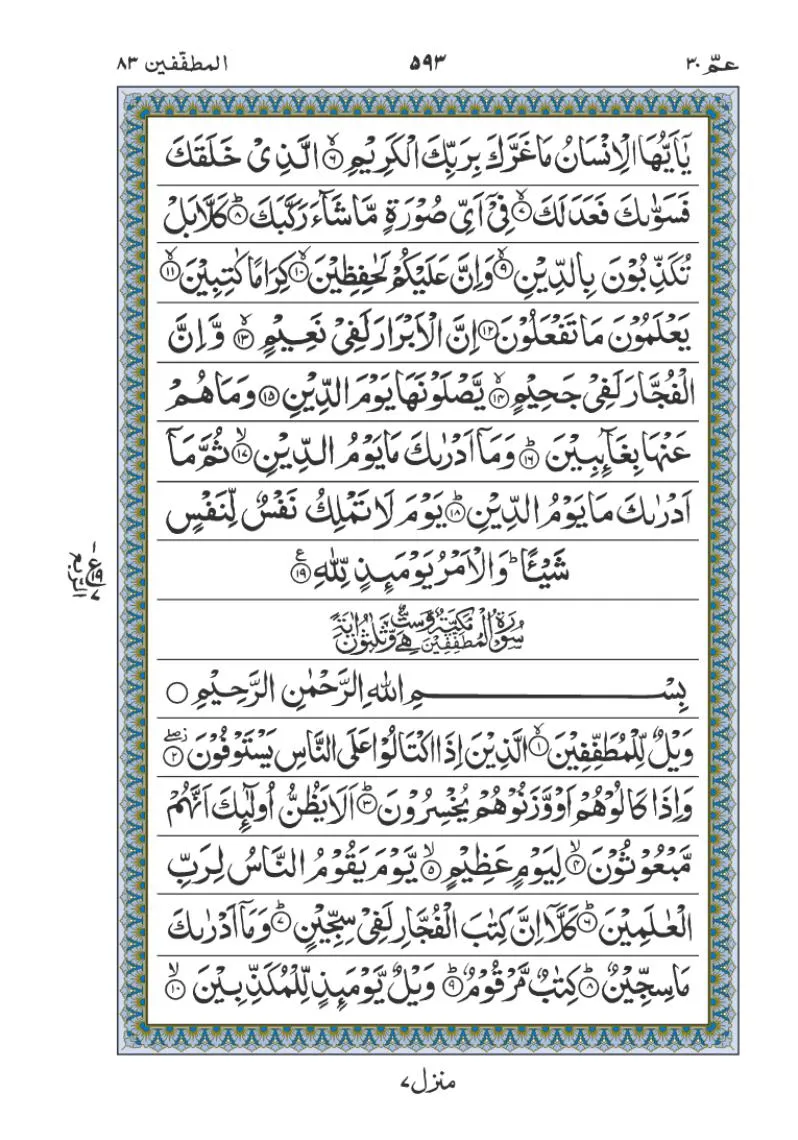 عمّ ٣٠ ٥٩٣ المطفّفين ٨٣
يٰۤاَيُّهَا الۡاِنۡسَانُ مَا غَرَّكَ بِرَبِّكَ الۡكَرِيۡمِۙ‏ ﴿۶﴾ الَّذِىۡ خَلَقَكَ
فَسَوّٰٮكَ فَعَدَلَـكَۙ‏ ﴿۷﴾ فِىۡۤ اَىِّ صُوۡرَةٍ مَّا شَآءَ رَكَّبَكَؕ‏ ﴿۸﴾ كَلَّا بَلۡ
تُكَذِّبُوۡنَ بِالدِّيۡنِۙ‏ ﴿۹﴾ وَاِنَّ عَلَيۡكُمۡ لَحٰـفِظِيۡنَۙ‏ ﴿۱۰﴾ كِرَامًا كٰتِبِيۡنَۙ‏ ﴿۱۱﴾
يَعۡلَمُوۡنَ مَا تَفۡعَلُوۡنَ‏ ﴿۱۲﴾ اِنَّ الۡاَبۡرَارَ لَفِىۡ نَعِيۡمٍۚ‏ ﴿۱۳﴾ وَّاِنَّ
الۡفُجَّارَ لَفِىۡ جَحِيۡمٍۚ‏ ﴿۱۴﴾ يَّصۡلَوۡنَهَا يَوۡمَ الدِّيۡنِ‏ ﴿۱۵﴾ وَمَا هُمۡ
عَنۡهَا بِغَآٮِٕبِيۡنَؕ‏ ﴿۱۶﴾ وَمَاۤ اَدۡرٰٮكَ مَا يَوۡمُ الدِّيۡنِۙ‏ ﴿۱۷﴾ ثُمَّ مَاۤ
اَدۡرٰٮكَ مَا يَوۡمُ الدِّيۡنِؕ‏ ﴿۱۸﴾ يَوۡمَ لَا تَمۡلِكُ نَفۡسٌ لِّنَفۡسٍ
شَيۡـًٔـاؕ وَالۡاَمۡرُ يَوۡمَٮِٕذٍ لِّلّٰهِ‏ ﴿۱۹﴾
سُوۡرَةُ الۡمُطَفِّفِيۡنَ مَكِّيَّةٌ وَّهِىَ سِتٌّ وَّثَلٰثُوۡنَ اٰيَةً
بِسۡمِ اللهِ الرَّحۡمٰنِ الرَّحِيۡمِ
وَيۡلٌ لِّلۡمُطَفِّفِيۡنَۙ‏ ﴿۱﴾ الَّذِيۡنَ اِذَا اكۡتَالُوۡا عَلَى النَّاسِ يَسۡتَوۡفُوۡنَۖ‏ ﴿۲﴾
وَاِذَا كَالُوۡهُمۡ اَوْ وَّزَنُوۡهُمۡ يُخۡسِرُوۡنَؕ‏ ﴿۳﴾ اَلَا يَظُنُّ اُولٰٓٮِٕكَ اَنَّهُمۡ
مَّبۡعُوۡثُوۡنَۙ‏ ﴿۴﴾ لِيَوۡمٍ عَظِيۡمٍۙ‏ ﴿۵﴾ يَّوۡمَ يَقُوۡمُ النَّاسُ لِرَبِّ
الۡعٰلَمِيۡنَؕ‏ ﴿۶﴾ كَلَّاۤ اِنَّ كِتٰبَ الۡفُجَّارِ لَفِىۡ سِجِّيۡنٍؕ‏ ﴿۷﴾ وَمَاۤ اَدۡرٰٮكَ
مَا سِجِّيۡنٌؕ‏ ﴿۸﴾ كِتٰبٌ مَّرۡقُوۡمٌؕ‏ ﴿۹﴾ وَيۡلٌ يَّوۡمَٮِٕذٍ لِّلۡمُكَذِّبِيۡنَۙ‏ ﴿۱۰﴾
منزل ٧